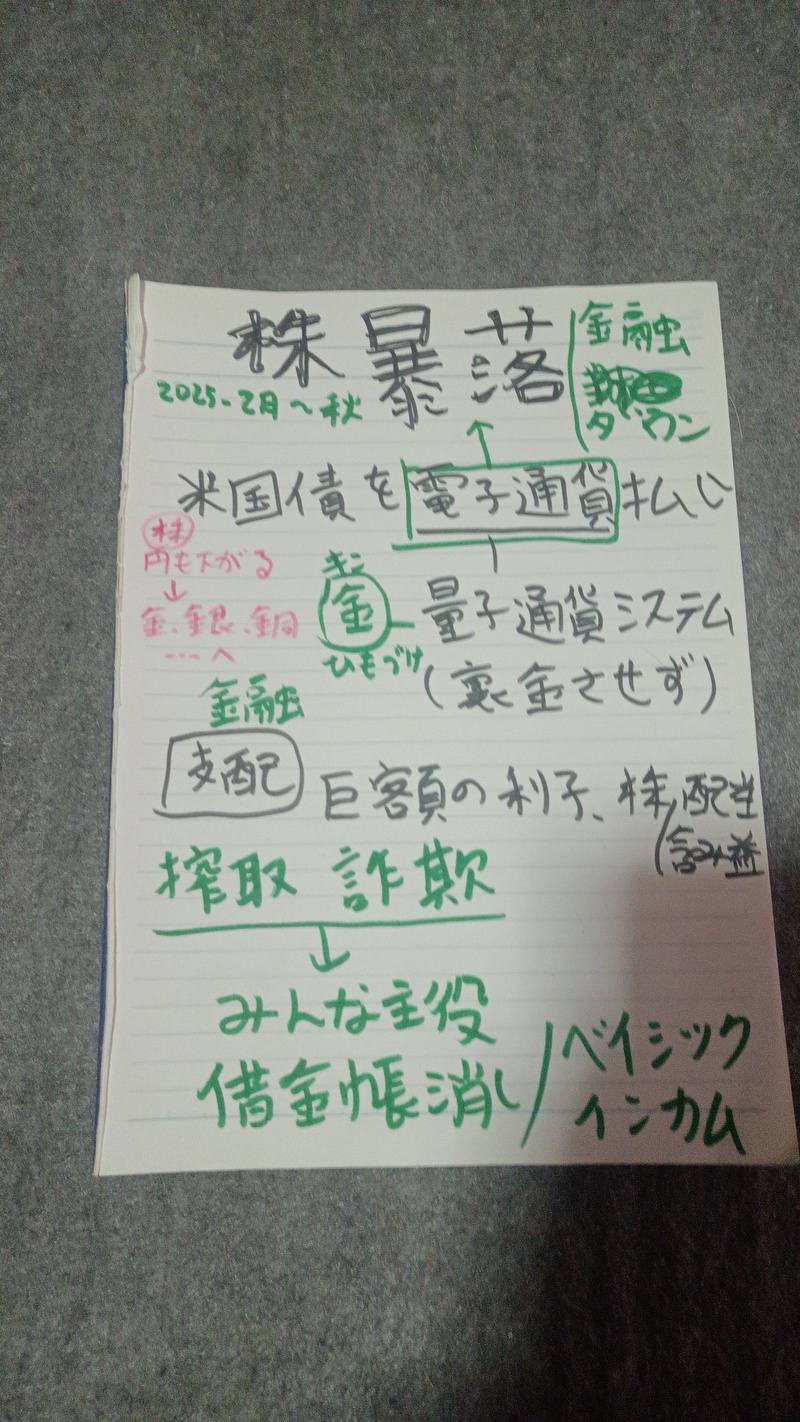 株暴落
金融
ダウン
2025-2月〜秋
米国債を電子通貨払い
株
円も下がる
↓
金、銀、銅
…へ
きん
金
ひもづけ
量子通貨システム
(裏金させず)
金融
支配
巨額の利子、株/配当
含み益
搾取 詐欺
↓
みんな主役
借金帳消し/ベイシック
インカム